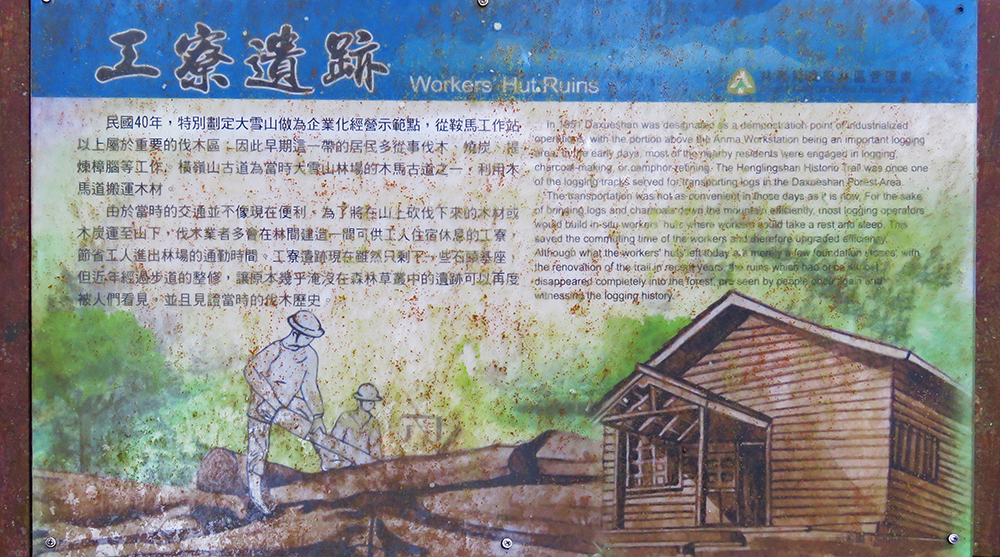 工寮遺跡
Workers' Hut Ruins
林務局東勢林區管理處
民國40年，特別劃定大雪山做為企業化經營示範點，從鞍馬工作站
以上屬於重要的伐木區；因此早期這一帶的居民多從事伐木、燒炭、提
煉樟腦等工作，橫嶺山古道為當時大雪山林場的木馬古道之一，利用木
馬道搬運木材。
由於當時的交通並不像現在便利，為了將在山上砍伐下來的木材或
木炭運至山下，伐木業者多會在林間建造一間可供工人住宿休息的工寮，
節省工人進出林場的通勤時間。工寮遺跡現在雖然只剩下一些石頭基座，
但近年經過步道的整修，讓原本幾乎淹沒在森林草叢中的遺跡可以再度
被人們看見，並且見證當時的伐木歷史。
In 1951, Daxueshan was designated as a demonstration point of industrialized
operations, with the portion above the Anma Workstation being an important logging
area. In the early days, most of the nearby residents were engaged in logging,
charcoal-making, or camphor-refining. The Henglingshan Historic Trail was once one
of the logging tracks served for transporting logs in the Daxueshan Forest Area.
The transportation was not as convenient in those days as it is now. For the sake
of bringing logs and charcoals down the mountain efficiently, most logging operators
would build in-situ workers' huts where workers could take a rest and sleep. This
saved the commuting time of the workers and therefore upgraded efficiency.
Although what the workers' huts left today are merely a few foundation stones, with
the renovation of the trail in recent years, the ruins which had once almost
disappeared completely into the forest, are seen by people once again and
witnessing the logging history.